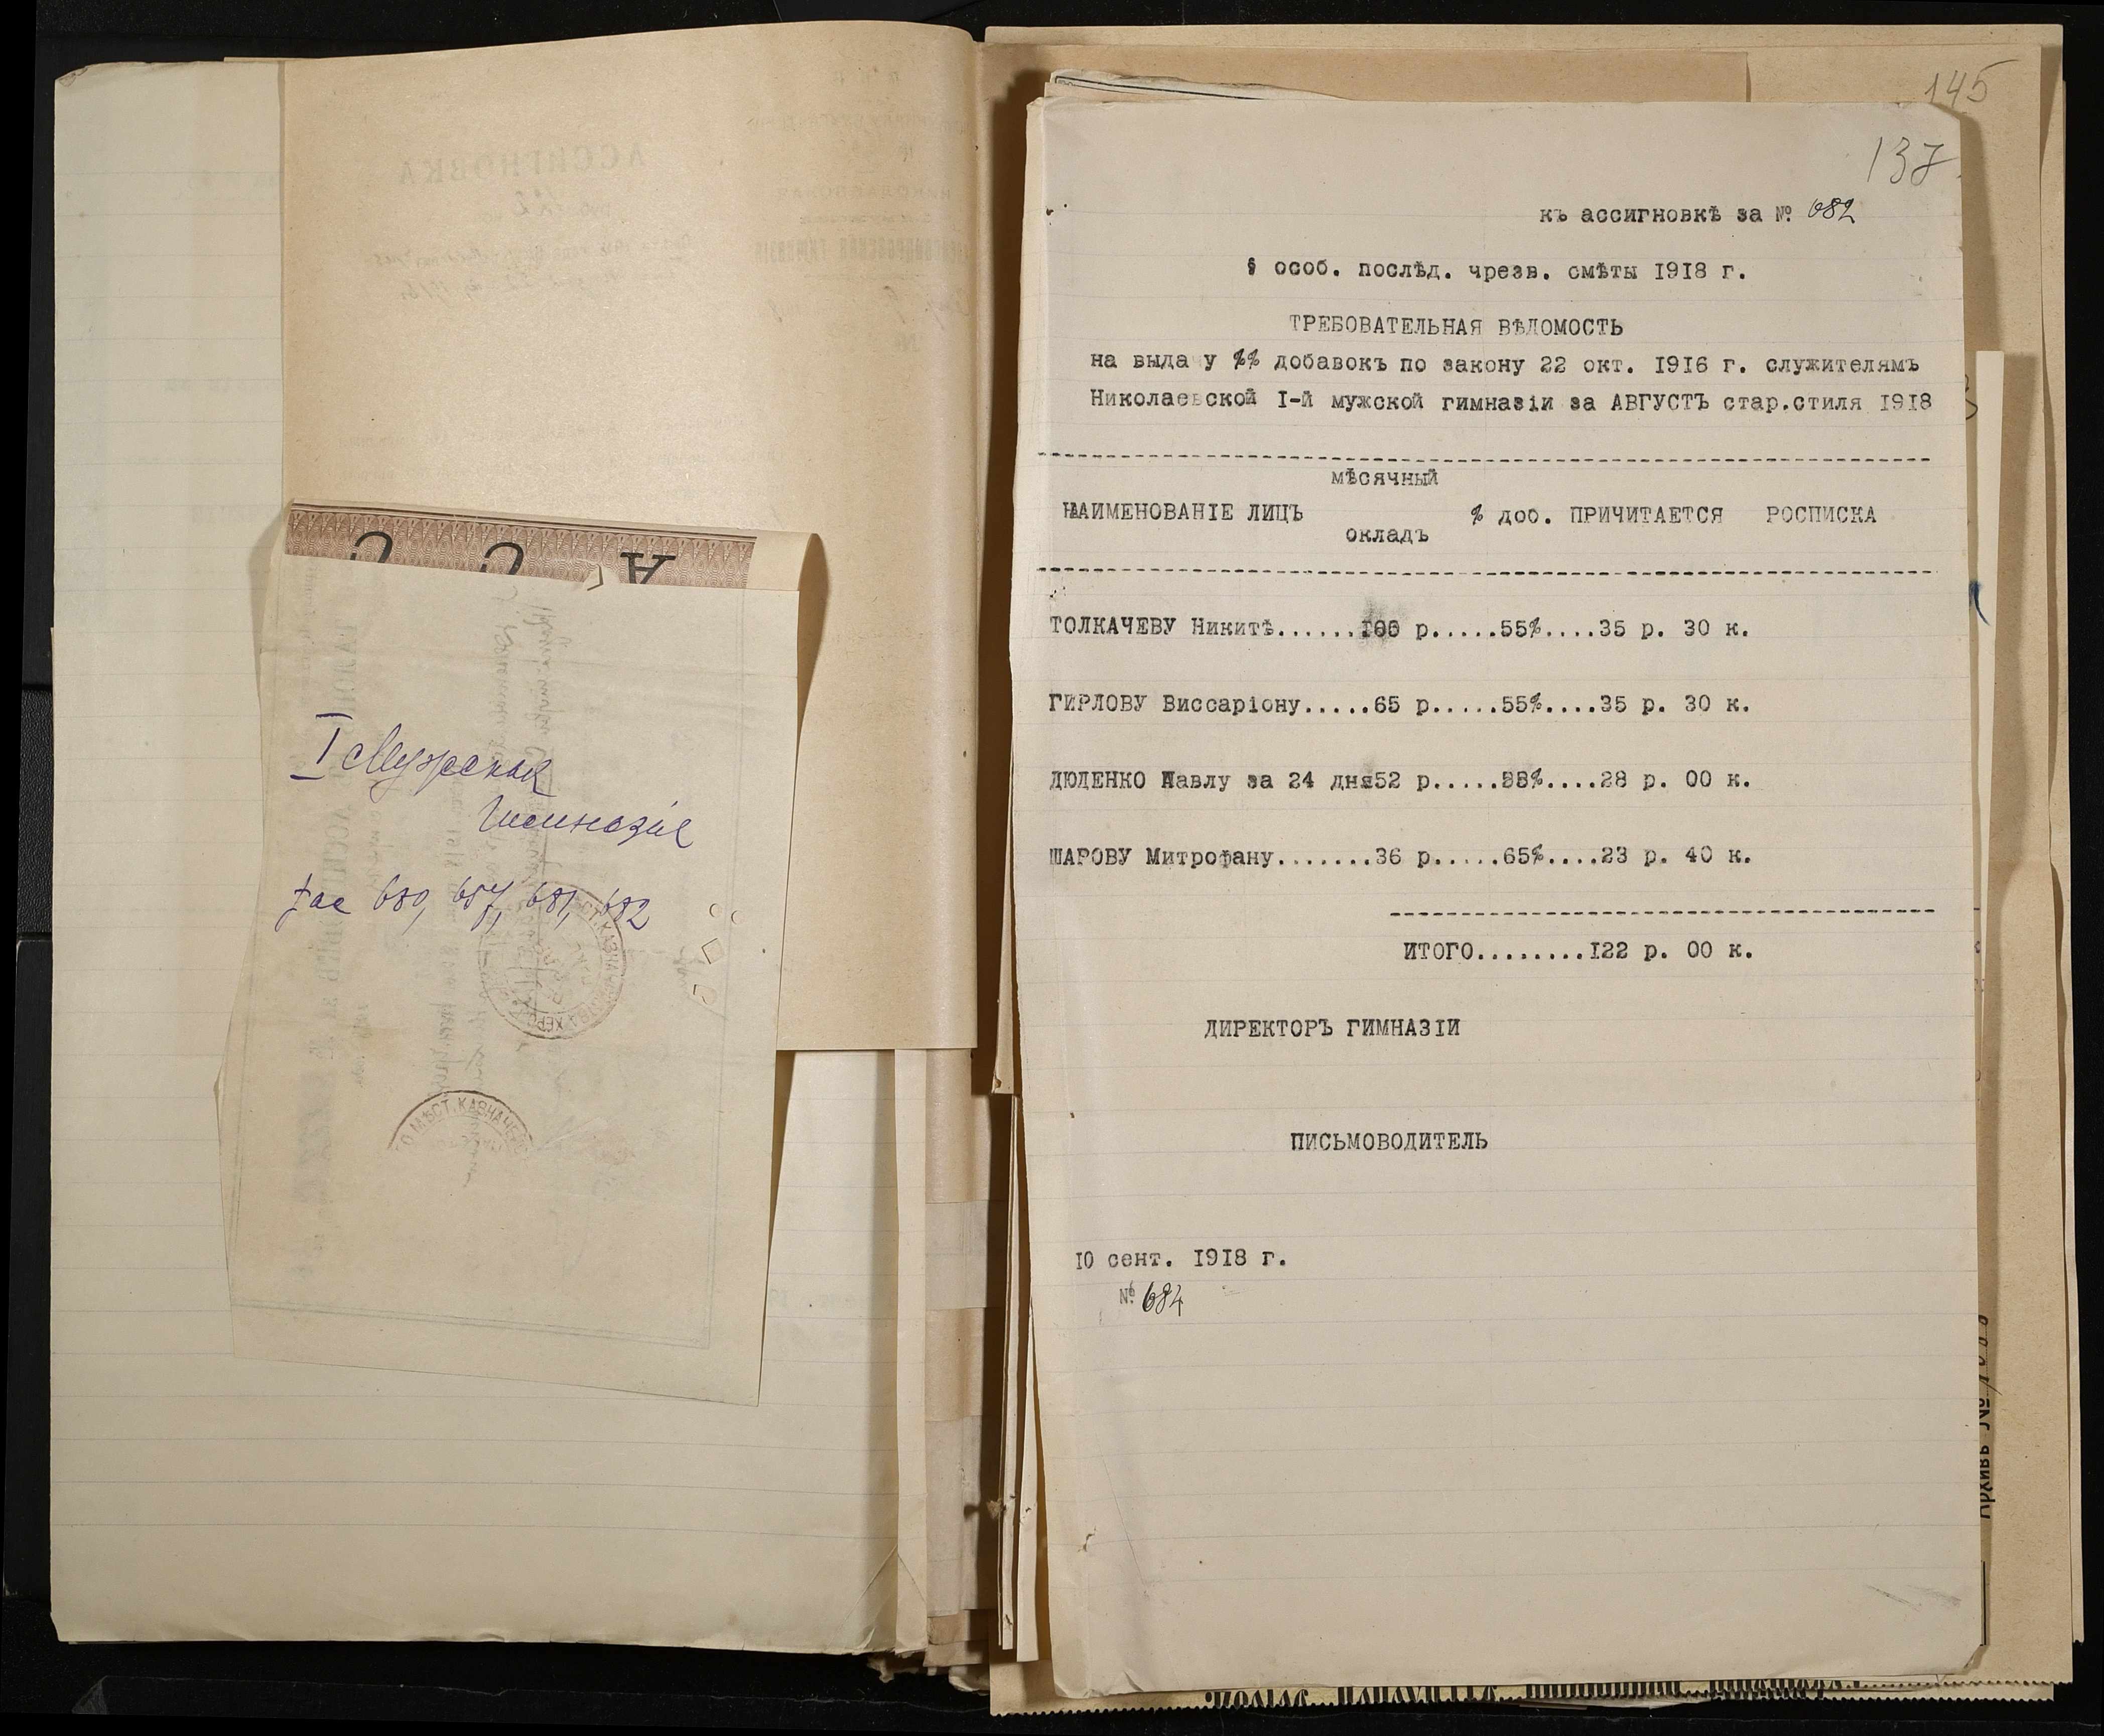 I Мужская
Гимназия
680, 657, 681, 682
АСС
О МѢСТ. КАЗНАЧЕЙС
145
137
къ ассигновкѣ за № 682
§ особ. послѣд. чрезв. смѣты 1918 г.
ТРЕБОВАТЕЛЬНАЯ ВѢДОМОСТЬ
на выдачу %% добавокъ по закону 22 окт. 1916 г. служителямъ
Николаевской I-й мужской гимназіи за АВГУСТЪ стар.стиля 1918
мѣсячный
НАИМЕНОВАНІЕ ЛИЦЪ % доб. ПРИЧИТАЕТСЯ РОСПИСКА
окладъ
ТОЛКАЧЕВУ Никитѣ...... р.....55%....35 р. 30 к.
ГИРЛОВУ Виссаріону.....65 р.....55%....35 р. 30 к.
ДЮДЕНКО Павлу за 24 дня52 р.........28 р. 00 к.
ШАРОВУ Митрофану.......36 р.....65%....23 р. 40 к.
ИТОГО........I22 р. 00 к.
ДИРЕКТОРЪ ГИМНАЗІИ
ПИСЬМОВОДИТЕЛЬ
IO сент. 1918 г.
№ 684
Архивъ №